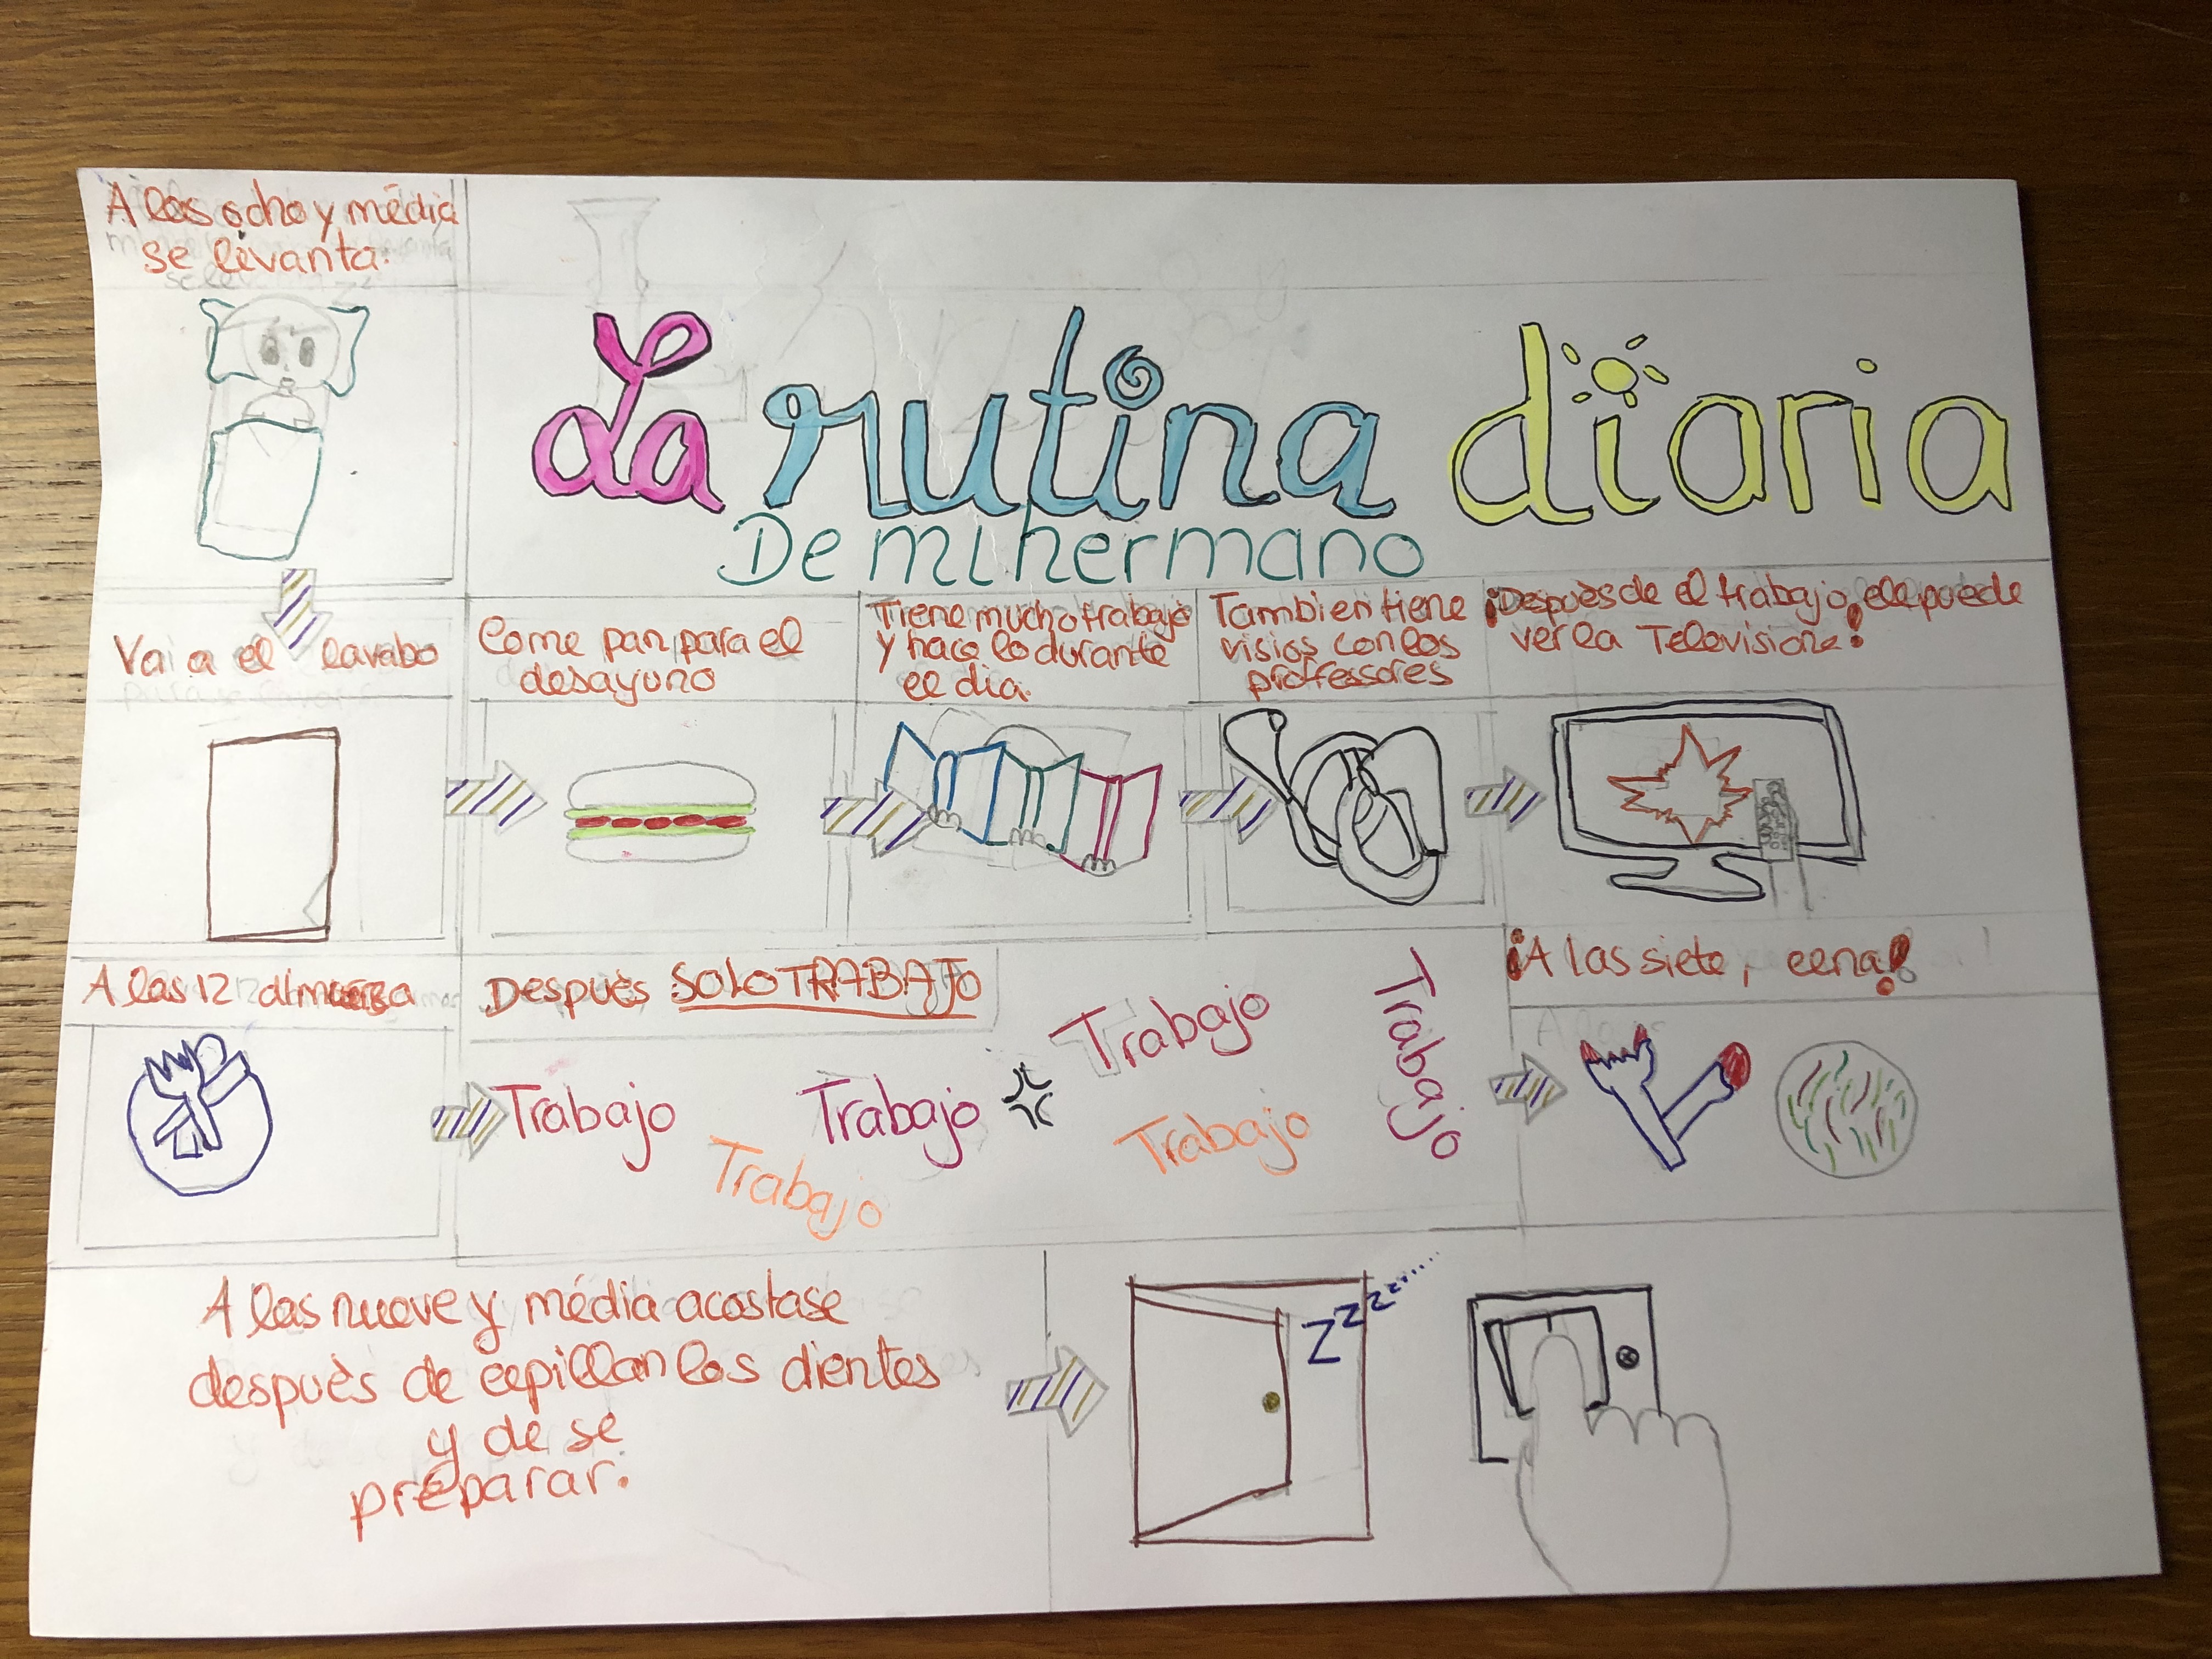 A las ocho y média
se levanta.
La rutina diaria
De mi hermano
Vai a el lavabo
Come pan para el
desayuno
Tiene mucho trabajo
y hace lo durante
el dia.
Tambien tiene
visios con los
proffessores
¡Despuès de el trabajo, ele puede
ver la Televisione!
A las 12 almuerza
Despuès SOLO TRABAJO
Trabajo
Trabajo
Trabajo
Trabajo
Trabajo
Trabajo
¡A las siete, cena!
A las nueve y média acostase
despuès de cepillan los dientes
y de se
preparar.
Zzzz